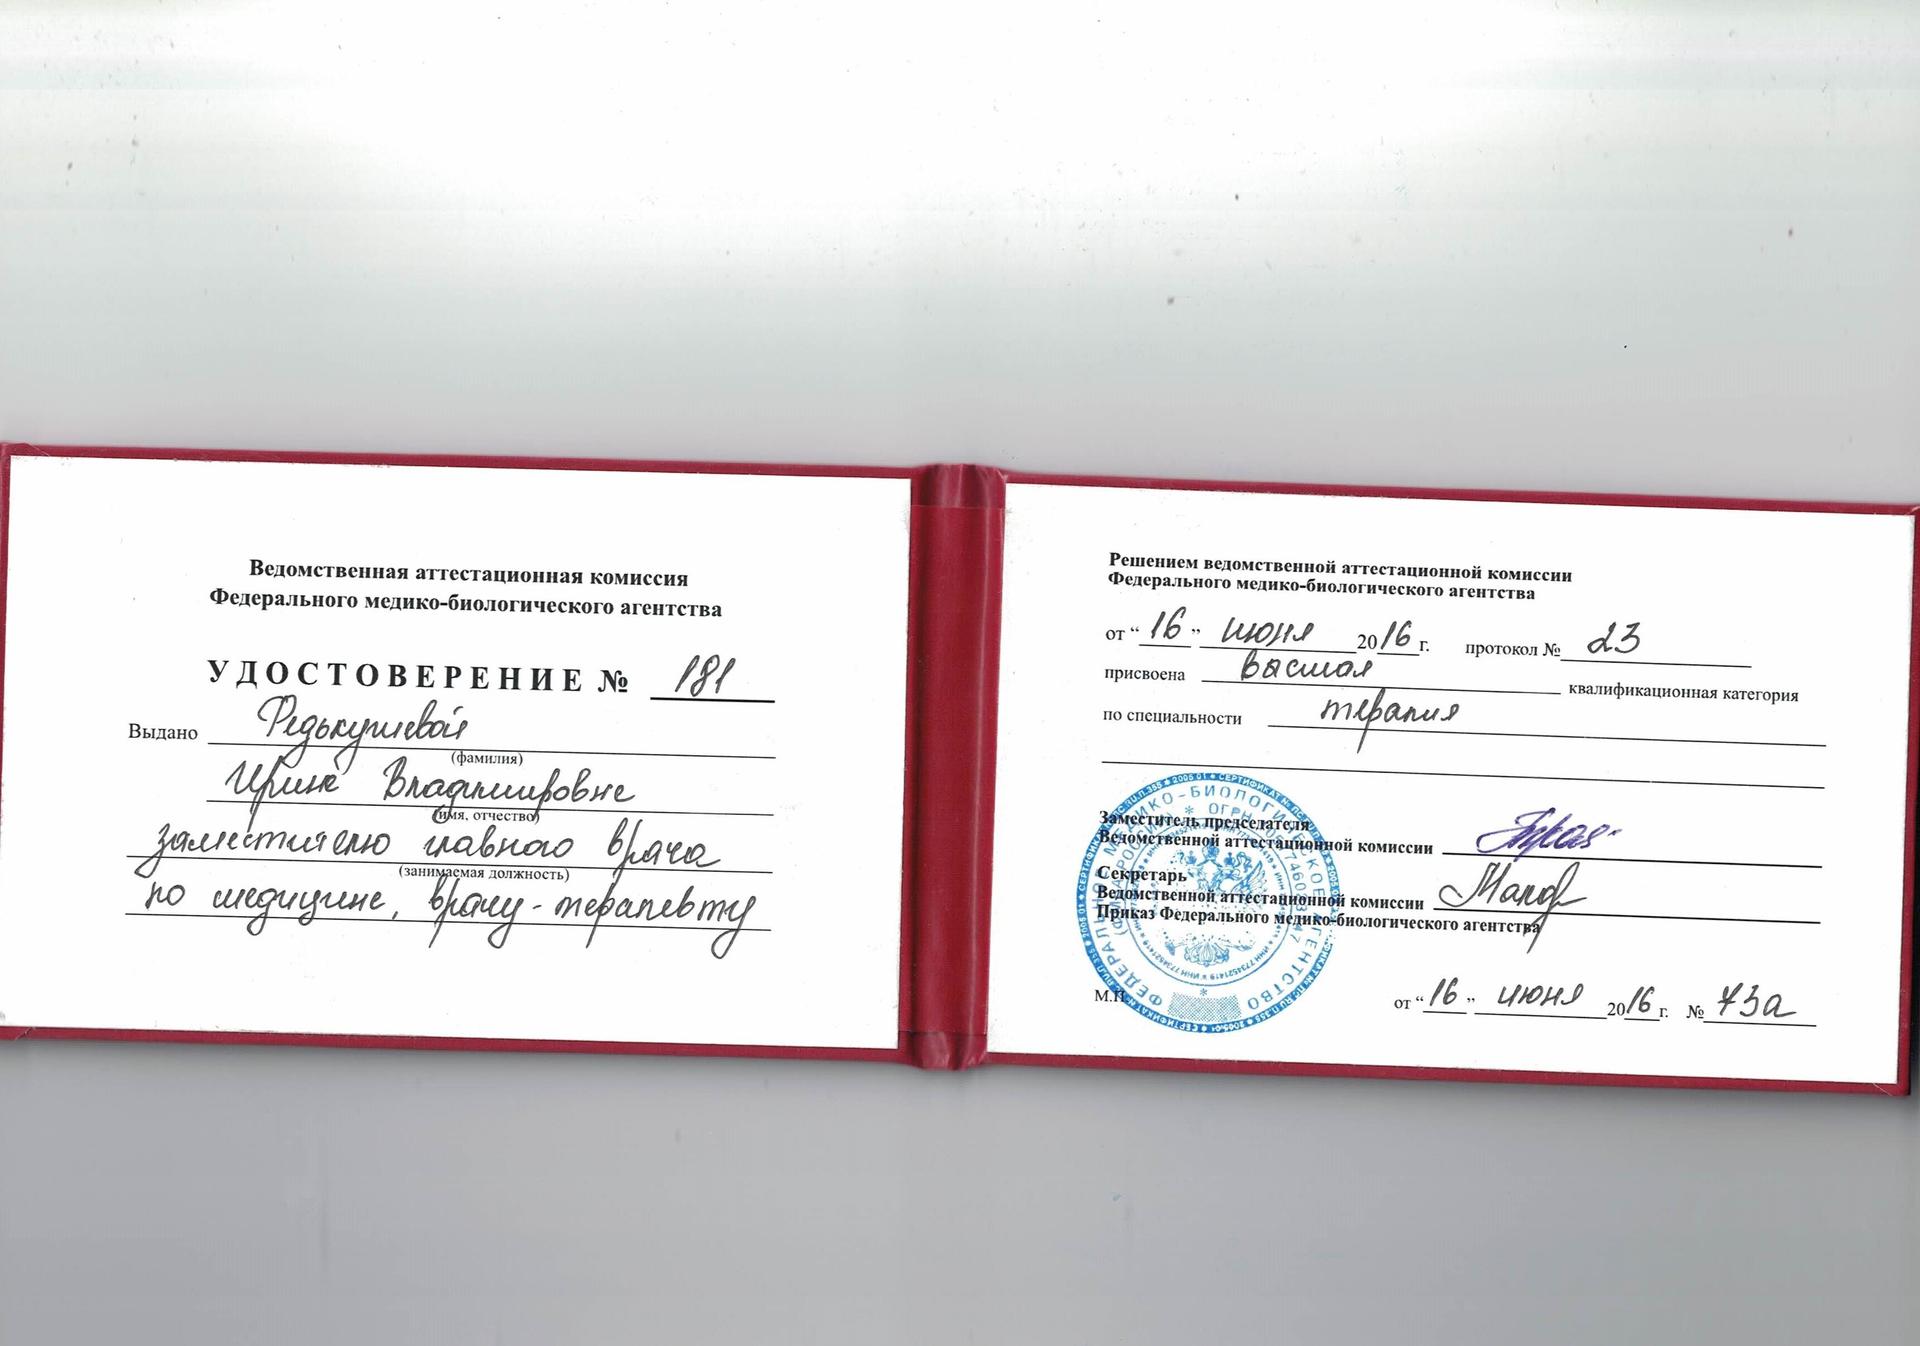 Ведомственная аттестационная комиссия
Федерального медико-биологического агентства
УДОСТОВЕРЕНИЕ № 181
Выдано Редькушевой
(фамилия)
Ирине Владимировне
(имя, отчество)
заместителю главного врача
(занимаемая должность)
по медицине, врачу-терапевту
Решением ведомственной аттестационной комиссии
Федерального медико-биологического агентства
от “16” июня 2016 г. протокол № 23
присвоена высшая квалификационная категория
по специальности терапия
Заместитель председателя
Ведомственной аттестационной комиссии
Секретарь
Ведомственной аттестационной комиссии
Приказ Федерального медико-биологического агентства
М.П.
от “16” июня 2016 г. № 73а
ФЕДЕРАЛЬНОЕ МЕДИКО-БИОЛОГИЧЕСКОЕ АГЕНТСТВО